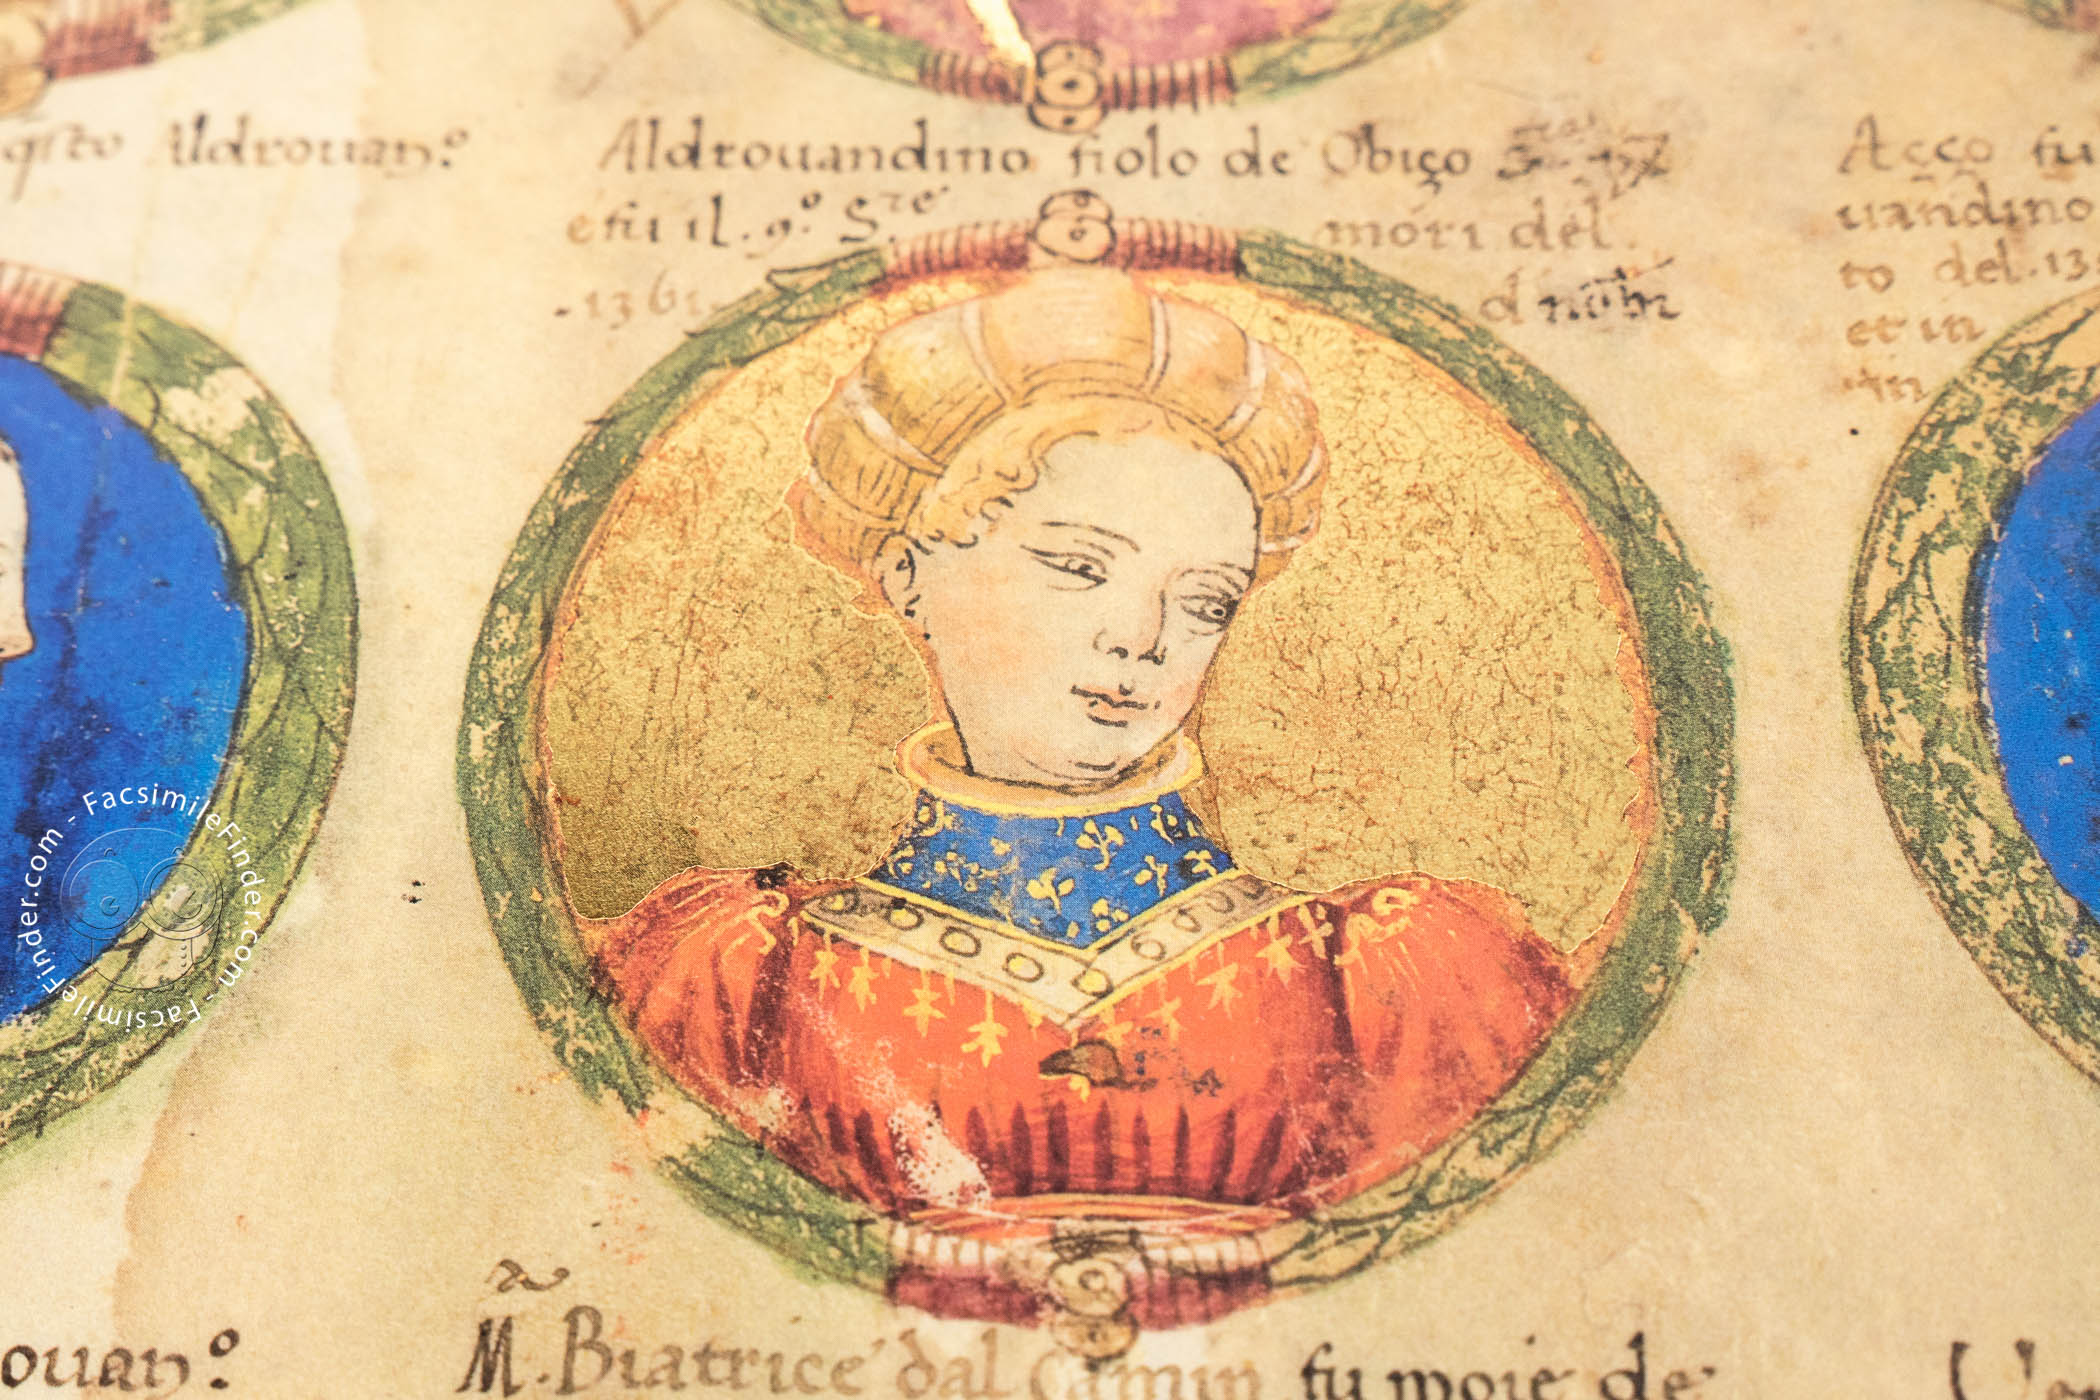 qsto ildrouan:º
Aldrouandino fiolo de Obiço
e fu il .9º. Sre
mori del
.1361.
Acço fu
uandino
to del .13
et in
ouan:º
Ma. Biatrice dal Camin fu moie de
FacsimileFinder.com - FacsimileFinder.com - FacsimileFinder.com